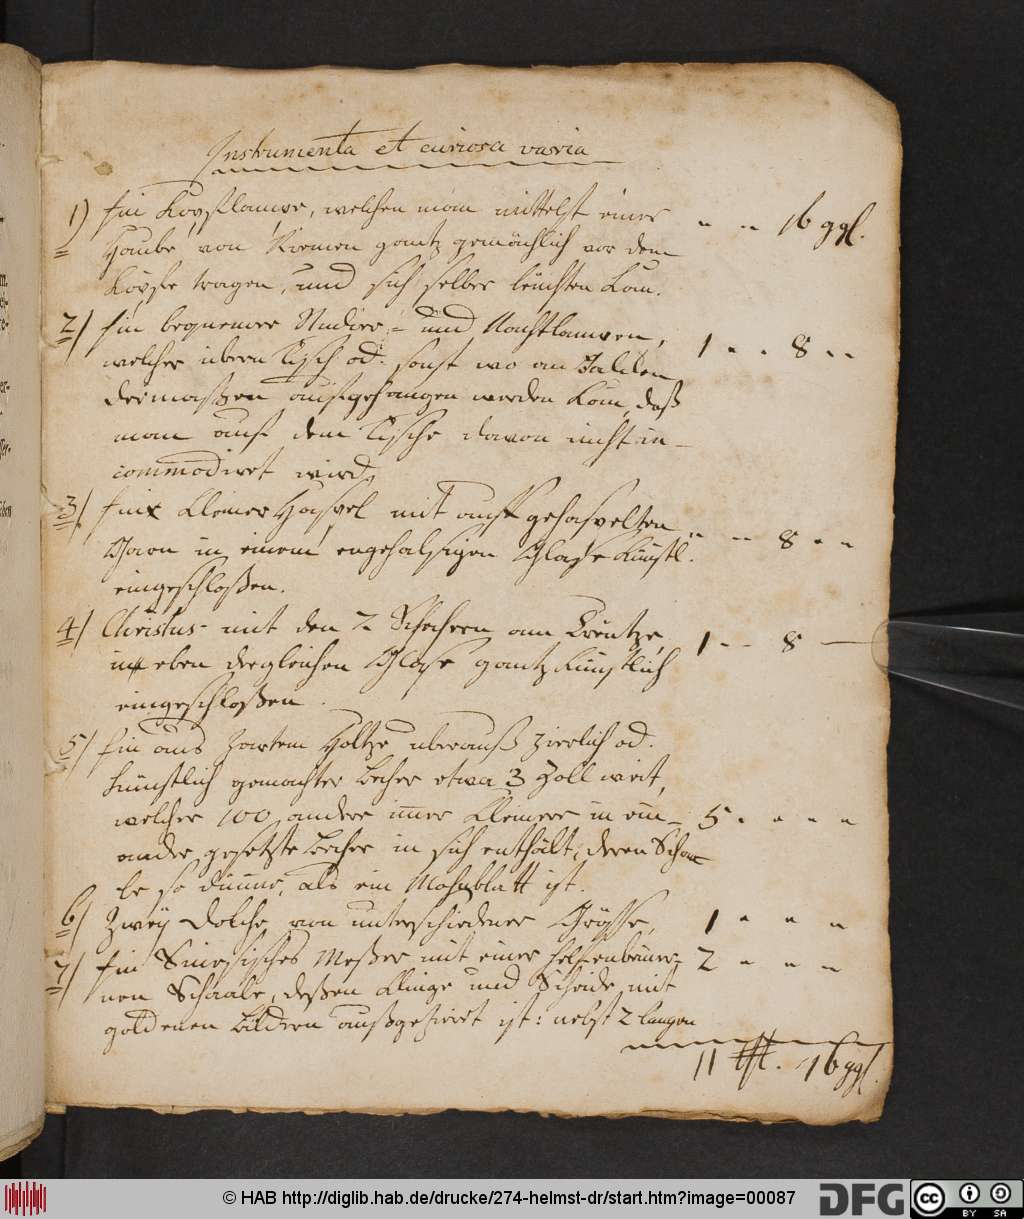 Instrumenta et curiosa varia
1) Ein Kopflampe, welchen man mittelst einer " " 16 ggl.
Haube von Riemen gantz gemächlich vor dem
Kopfe tragen, und sich selber leuchten kan.
2) Ein bequemer Studier- und Nachtlampen, 1 " " 8 " "
welcher übern Tisch od. sonst wo an
dermaßen aufgehangen werden kan, daß
man auf dem Tische davon nicht in-
commodiret wird.
3) Ein kleiner Haspel mit auff gehaspelten " " 8 " "
Garn in einem engehalsigen Glase künstl.
eingeschloßen.
4) Christus mit den 2 Schächern am Creutze, 1 - - 8 —
in eben dergleichen Glase gantz künstlich
eingeschloßen.
5) Ein aus zartem Holtze überauß zierlich od.
künstlich gemachter Becher etwa 3 Zoll weit,
welcher 100 andere immer kleinere in ein- 5 " " " "
ander gesetzte Becher in sich enthält, deren Schaa-
le so dünne, als ein Mohnblatt ist.
6) Zwey Dolche von unterschiedener Größe, 1 " " "
7) Ein Sinesisches Meßer mit einer helfenbeiner- 2 " " "
nen Schaale, deßen Klinge und Scheide mit
goldenen Bildern außgezieret ist: nebst 2 langen
11 thl. 16 ggl.
© HAB http://diglib.hab.de/drucke/274-helmst-dr/start.htm?image=00087
DFG
cc BY SA